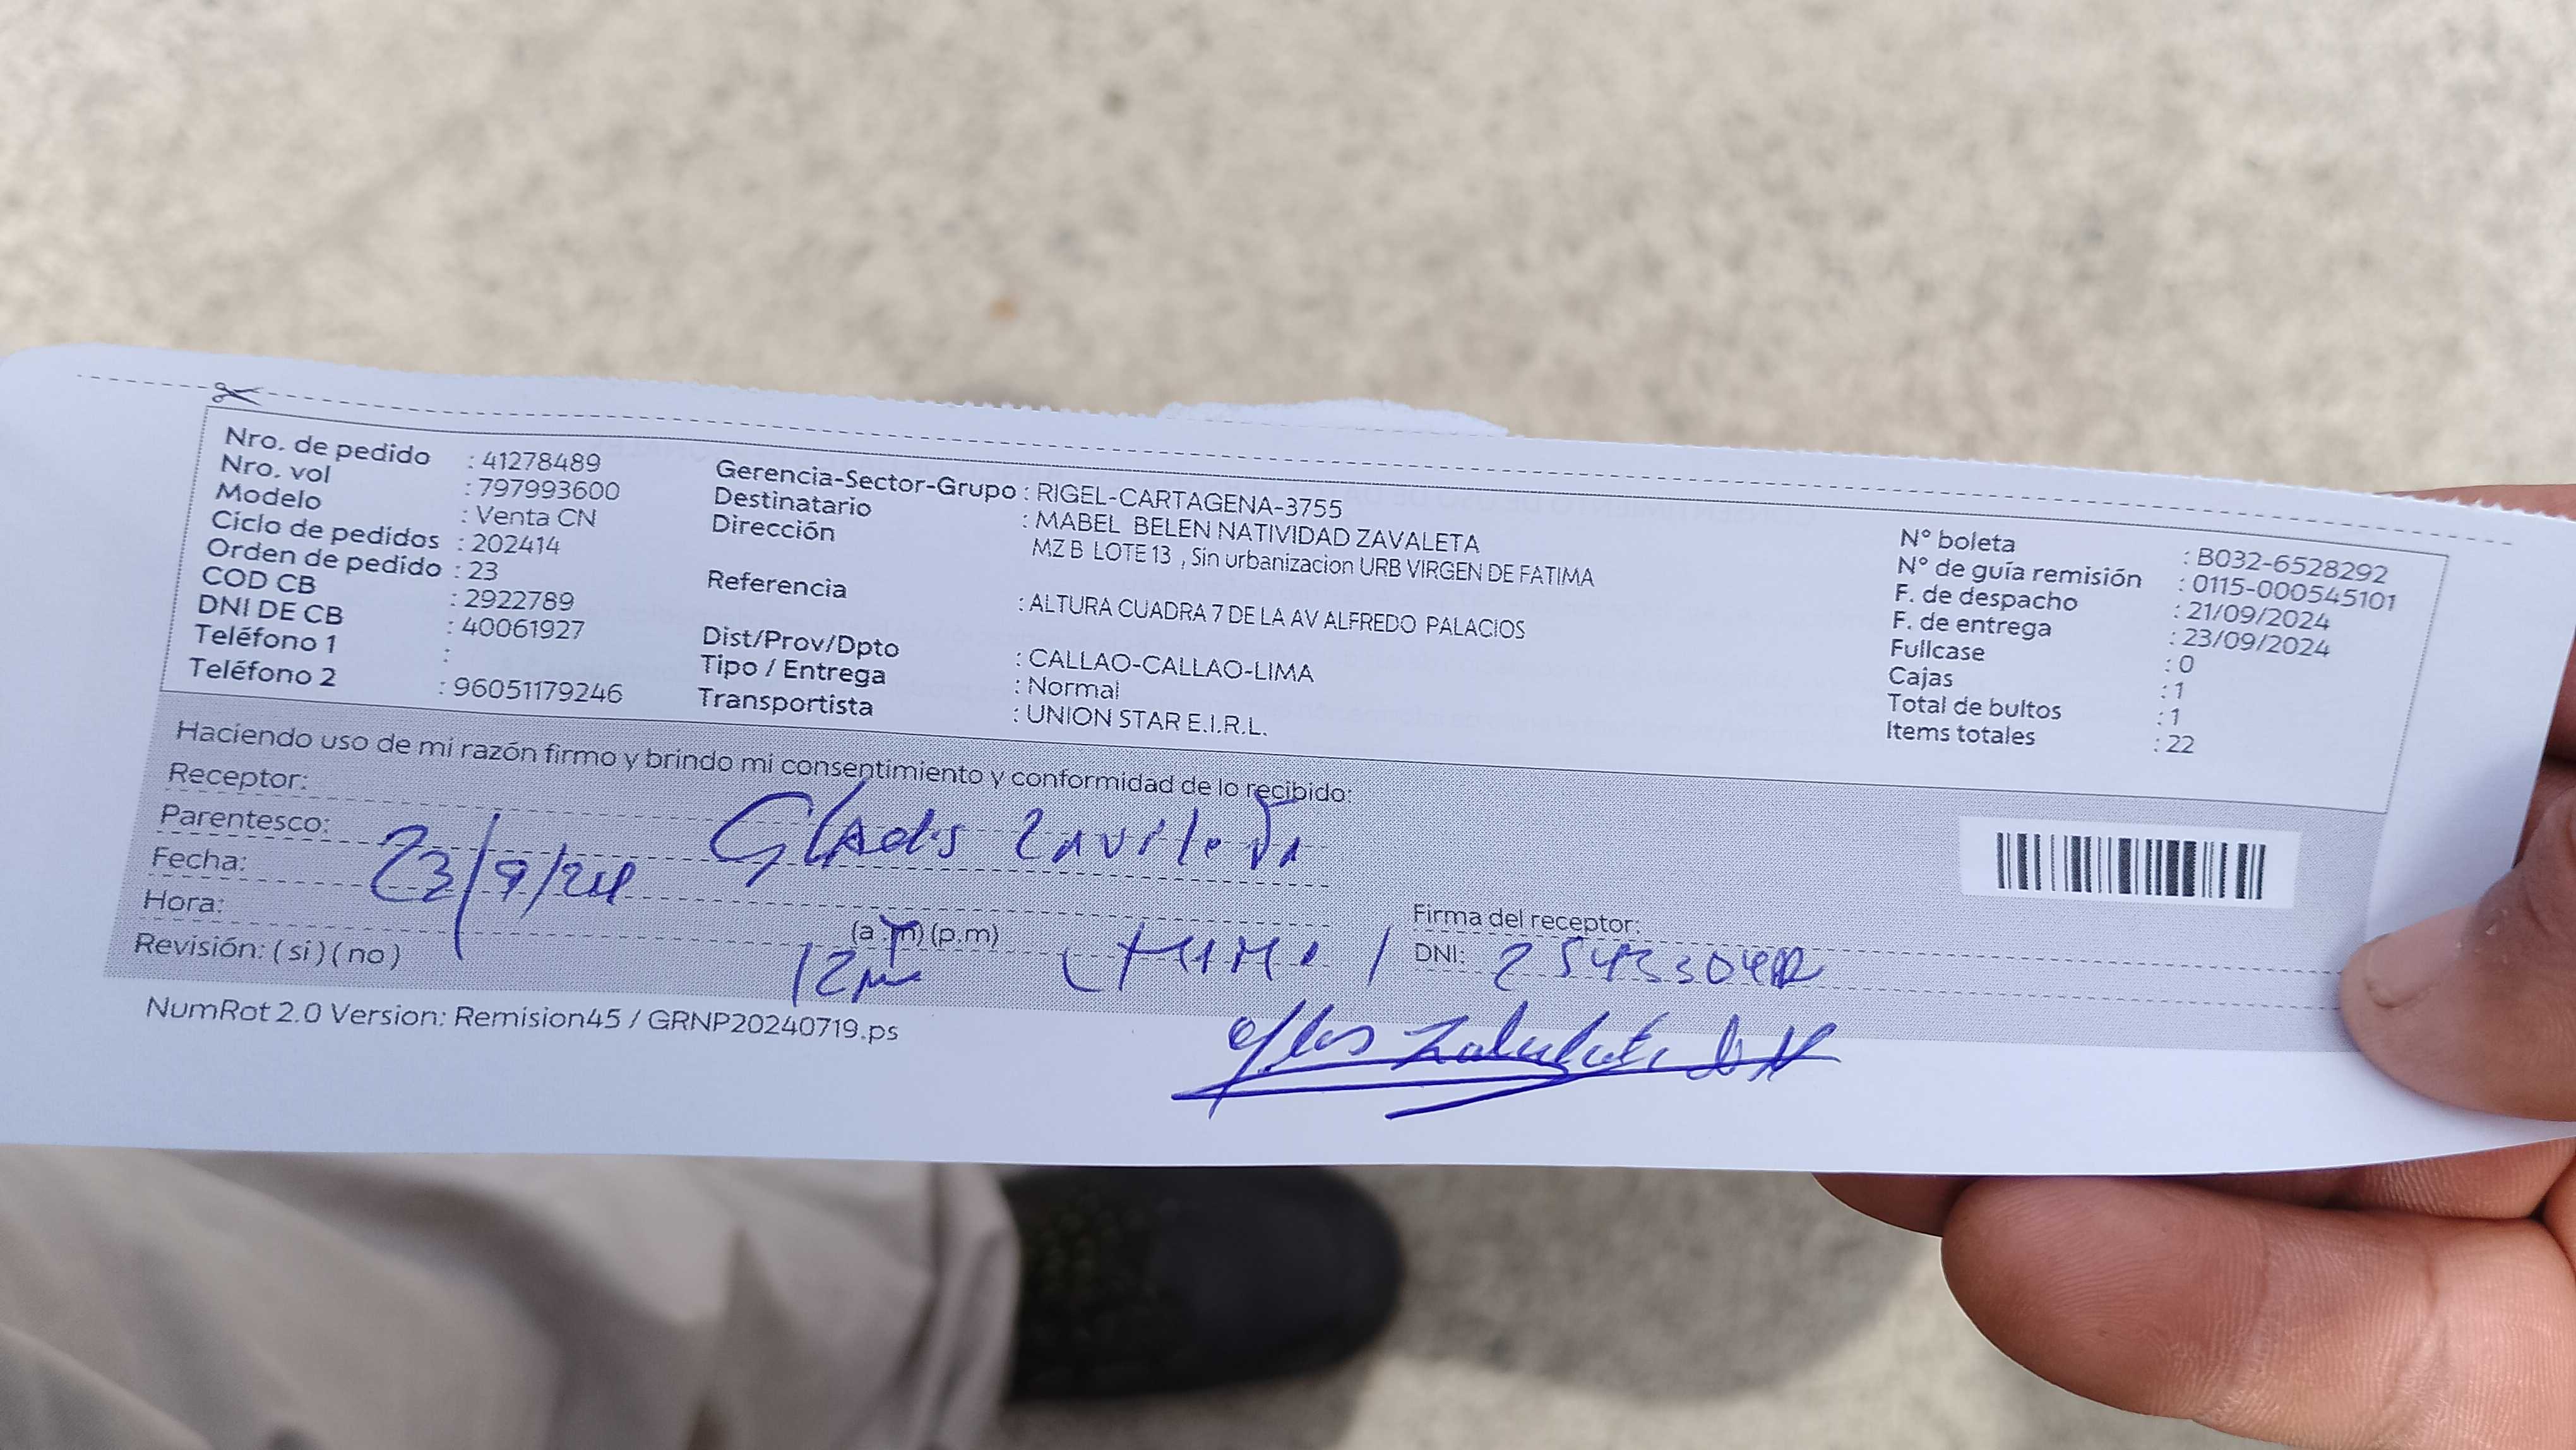 Nro. de pedido : 41278489
Nro. vol : 797993600
Modelo : Venta CN
Ciclo de pedidos : 202414
Orden de pedido : 23
COD CB : 2922789
DNI DE CB : 40061927
Teléfono 1 :
Teléfono 2 : 96051179246
Gerencia-Sector-Grupo : RIGEL-CARTAGENA-3755
Destinatario : MABEL BELEN NATIVIDAD ZAVALETA
Dirección MZ B LOTE 13 , Sin urbanizacion URB VIRGEN DE FATIMA
Referencia : ALTURA CUADRA 7 DE LA AV ALFREDO PALACIOS
Dist/Prov/Dpto : CALLAO-CALLAO-LIMA
Tipo / Entrega : Normal
Transportista : UNION STAR E.I.R.L.
N° boleta : B032-6528292
N° de guía remisión : 0115-000545101
F. de despacho : 21/09/2024
F. de entrega : 23/09/2024
Fullcase : 0
Cajas : 1
Total de bultos : 1
Items totales : 22
Haciendo uso de mi razón firmo y brindo mi consentimiento y conformidad de lo recibido:
Receptor:
Parentesco:
Fecha: 23/9/24
Hora: (a.m) (p.m) 12m
Revisión: ( si ) ( no )
Firma del receptor:
DNI:
NumRot 2.0 Version: Remision45 / GRNP20240719.ps